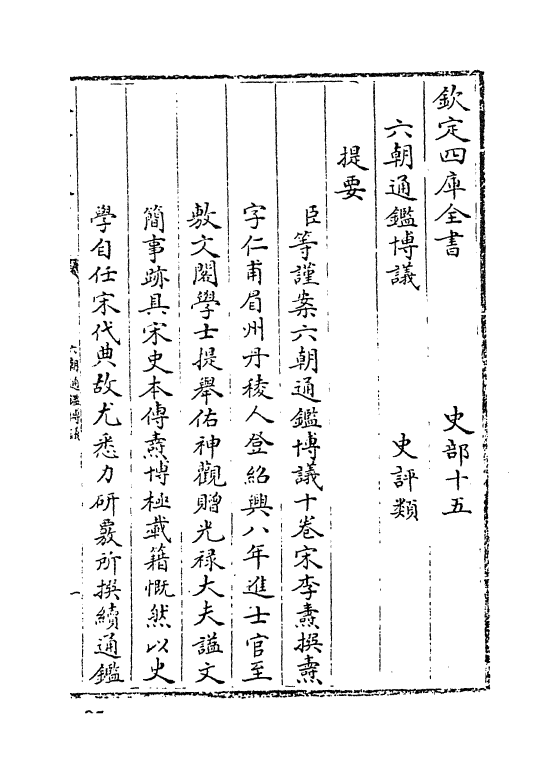 欽定四庫全書　史部十五
六朝通鑑博議　史評類
提要
臣等謹案六朝通鑑博議十卷宋李燾撰燾
字仁甫眉州丹稜人登紹興八年進士官至
敷文閣學士提舉佑神觀贈光禄大夫諡文
簡事跡具宋史本傳燾博極載籍慨然以史
學自任宋代典故尤悉力研覈所撰續通鑑
六朝通鑑博議
一